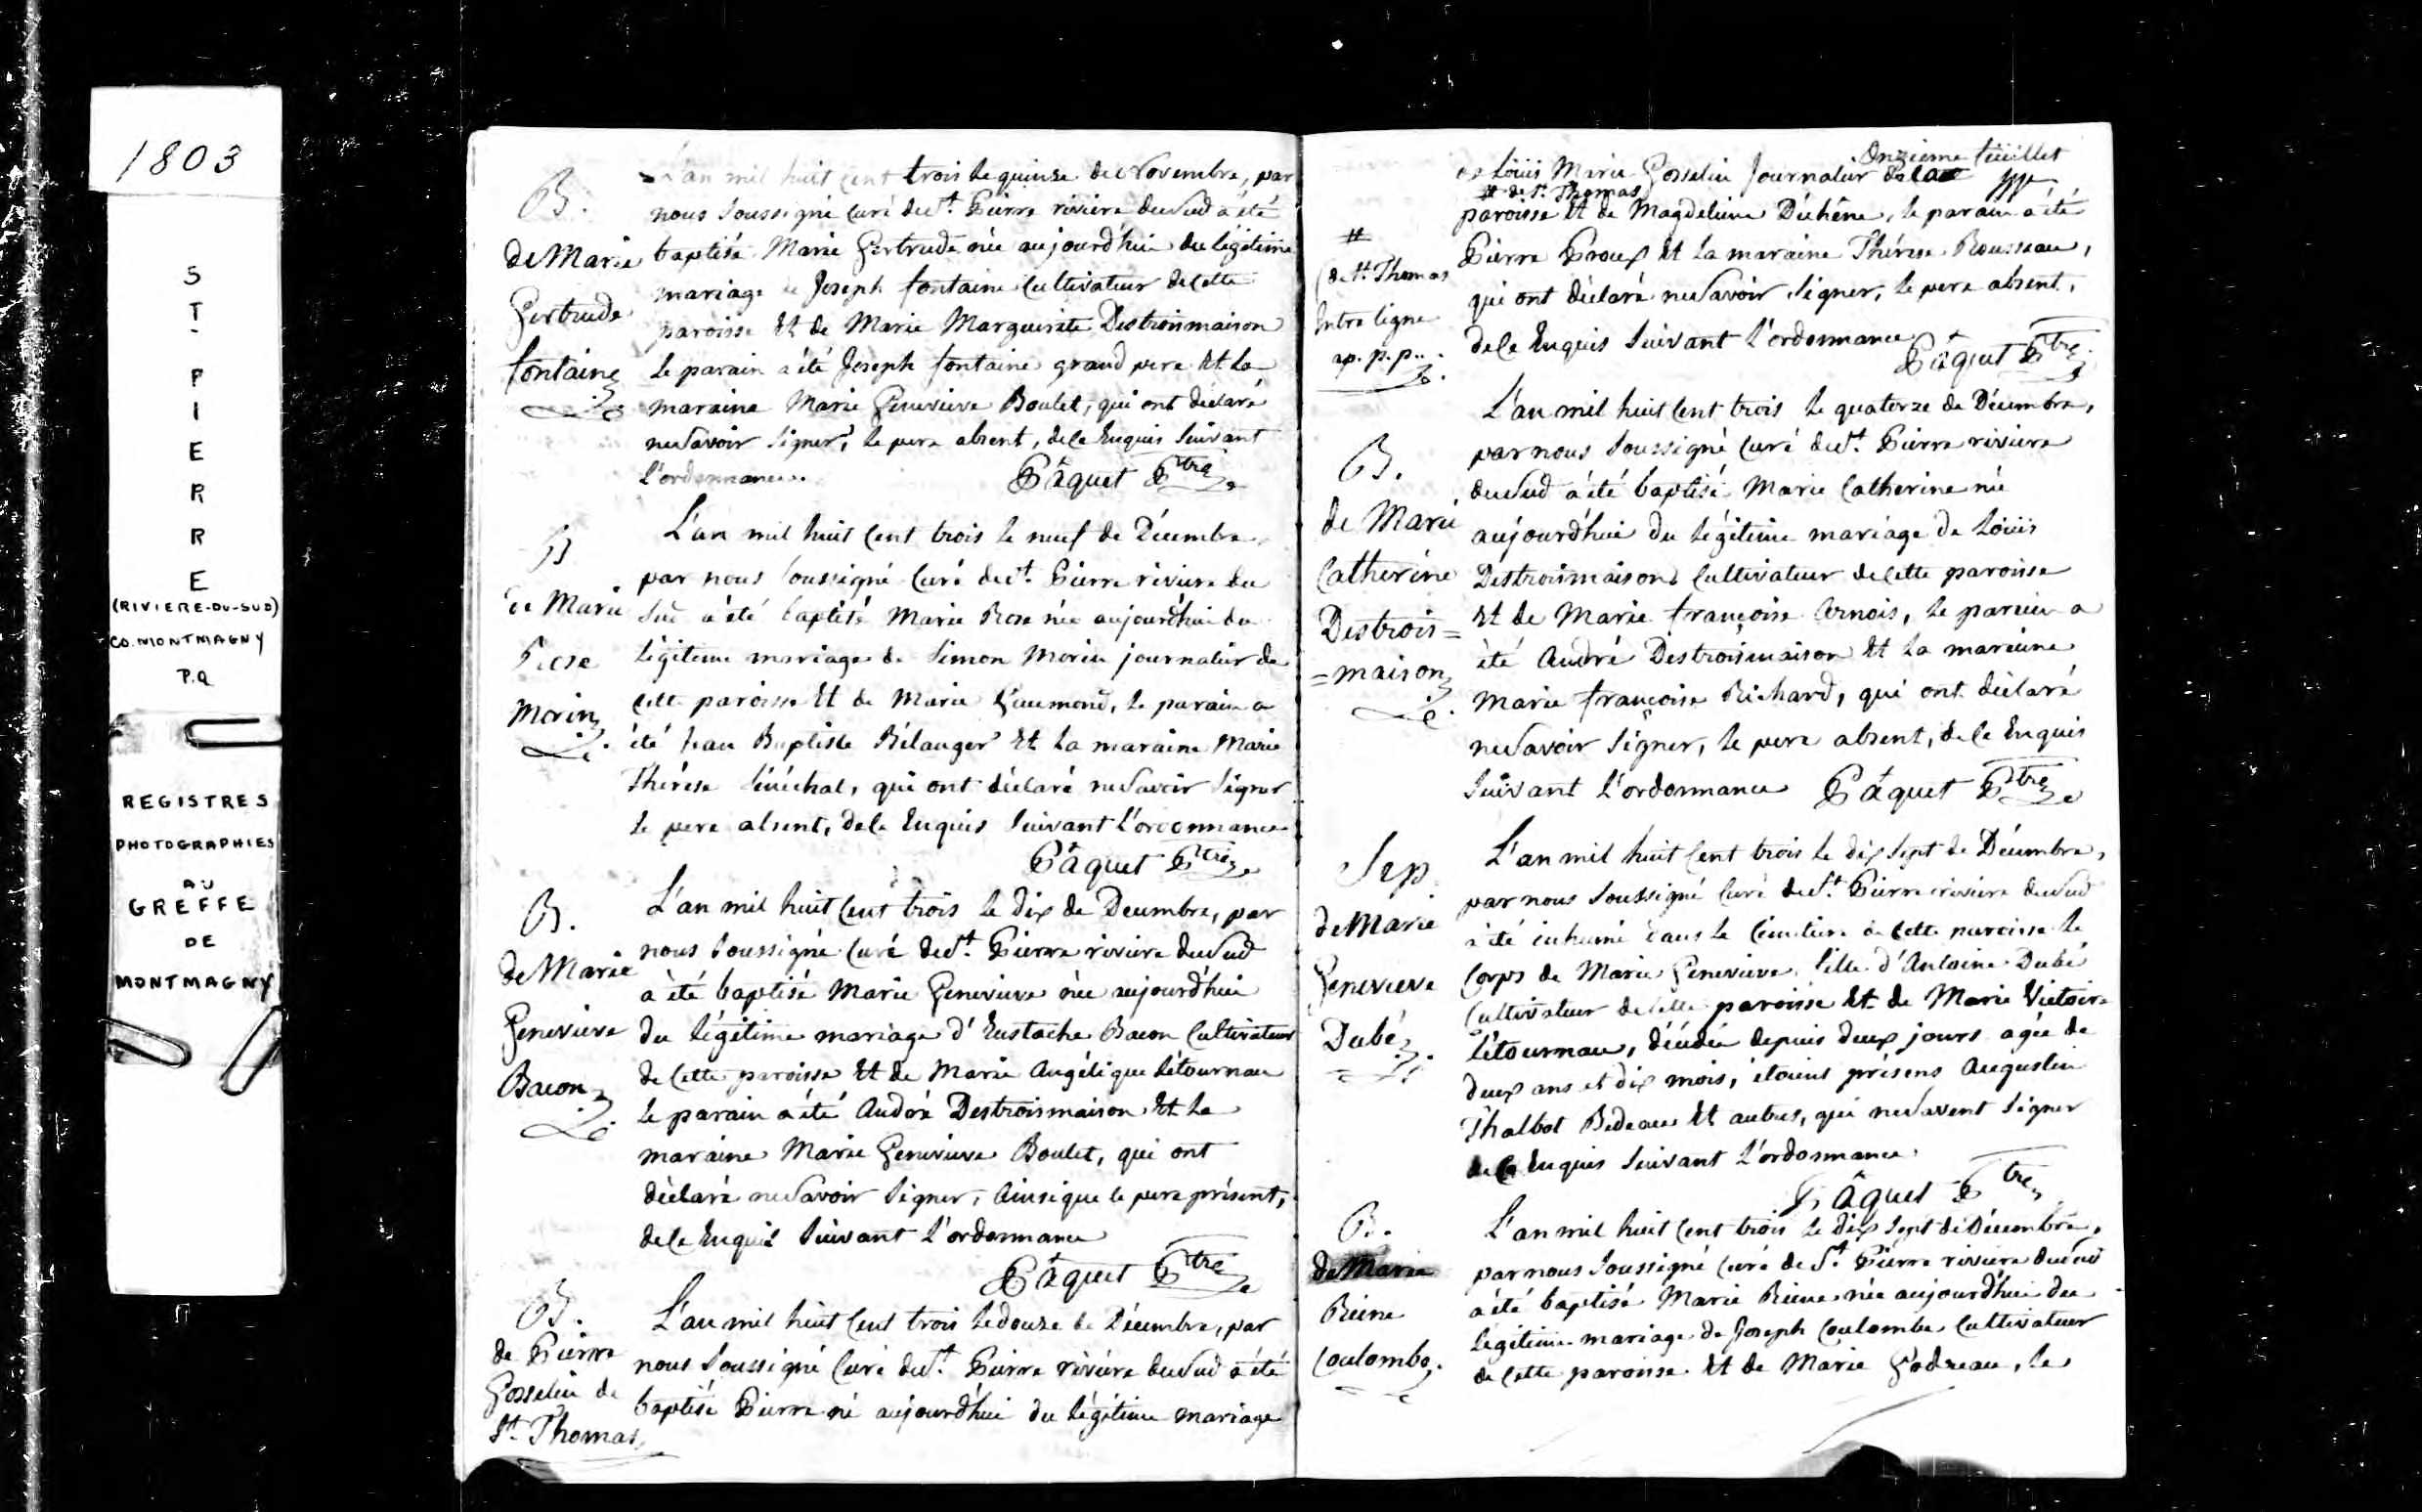 1803
ST-PIERRE
(RIVIERE-DU-SUD)
CO. MONTMAGNY
P.Q
REGISTRES
PHOTOGRAPHIES
AU
GREFFE
DE
MONTMAGNY
B.
de Marie
Gertrude
fontaine
L'an mil huit Cent trois le quinze de Novembre, par
nous Soussigné Curé de St. Pierre riviere du Sud a été
baptisé Marie Gertrude née aujourd'hui du légitime
mariage de Joseph fontaine Cultivateur de Cette
paroisse Et de Marie Marguerite Destroismaison
le parain a été Joseph fontaine grand pere Et la
maraine Marie Genevieve Boulet, qui ont déclaré
ne Savoir Signer, le pere absent, de Ce Enquis Suivant
l'ordonnance.
Pâquet Ptre
B
de Marie
Rose
Morin
L'an mil huit Cent trois le neuf de Décembre,
par nous Soussigné Curé de St. Pierre riviere du
Sud a été baptisé Marie Rose née aujourd'hui du
légitime mariage de Simon Morin journalier de
Cette paroisse Et de Marie Gaumond, le parain a
été Jean Baptiste Bélanger Et la maraine Marie
Thérèse Sénéchal, qui ont déclaré ne Savoir Signer
le pere absent, de Ce Enquis Suivant L'ordonnance
Pâquet Ptre
B.
de Marie
Genevieve
Bacon
L'an mil huit Cent trois le dix de Decembre, par
nous Soussigné Curé de St. Pierre riviere du Sud
a été baptisé Marie Genevieve née aujourd'hui
du légitime mariage d'Eustache Bacon Cultivateur
de Cette paroisse Et de Marie Angélique Létournau
le parain a été André Destroismaison Et la
maraine Marie Genevieve Boulet, qui ont
déclaré ne Savoir Signer, Ainsi que le pere présent,
de Ce Enquis Suivant L'ordonnance
Pâquet Ptre
B.
de Pierre
Gosselin de
St. Thomas
L'an mil huit Cent trois le douze de Décembre, par
nous Soussigné Curé de St. Pierre riviere du Sud a été
baptisé Pierre né aujourd'hui du légitime mariage
Onzieme feüillet
de Loüis Marie Gosselin Journalier de la
# de St. Thomas
paroisse Et de Magdeleine Düchêne, le parain a été
Pierre Proux Et la maraine Thérèse Rousseau,
qui ont déclaré ne Savoir Signer, le pere absent,
de Ce Enquis Suivant L'ordonnance
Pâquet Ptre
#
(de St. Thomas
Intre ligne
ap. p. p..
B.
de Marie
Catherine
Destrois=
=maison
L'an mil huit Cent trois le quatorze de Décembre,
par nous Soussigné Curé de St. Pierre riviere
du Sud a été baptisé Marie Catherine née
aujourd'hui du légitime mariage de Loüis
Destroismaison Cultivateur de Cette paroisse
Et de Marie françoise Arnois, le parain a
été André Destroismaison Et la maraine
Marie françoise Richard, qui ont déclaré
ne Savoir Signer, le pere absent, de Ce Enquis
Suivant L'ordonnance Pâquet Ptre
Sep
de Marie
Genevieve
Dubé
L'an mil huit Cent trois le dix Sept de Décembre,
par nous Soussigné Curé de St. Pierre riviere du Sud
a été inhumé dans le Cimetiere de Cette paroisse le
Corps de Marie Genevieve fille d'Antoine Dubé
Cultivateur de Cette paroisse Et de Marie Victoire
Létournau, décédée depuis deux jours agée de
deux ans et dix mois, étoient présens Augustin
Thalbot Bedeau Et autres, qui ne Savent Signer
de Ce Enquis Suivant L'ordonnance.
Pâquet Ptre
B.
de Marie
Reine
Coulombe.
L'an mil huit Cent trois le dix Sept de Décembre,
par nous Soussigné Curé de St. Pierre riviere du Sud
a été baptisé Marie Reine née aujourd'hui du
légitime mariage de Joseph Coulombe Cultivateur
de Cette paroisse Et de Marie Godreau, le